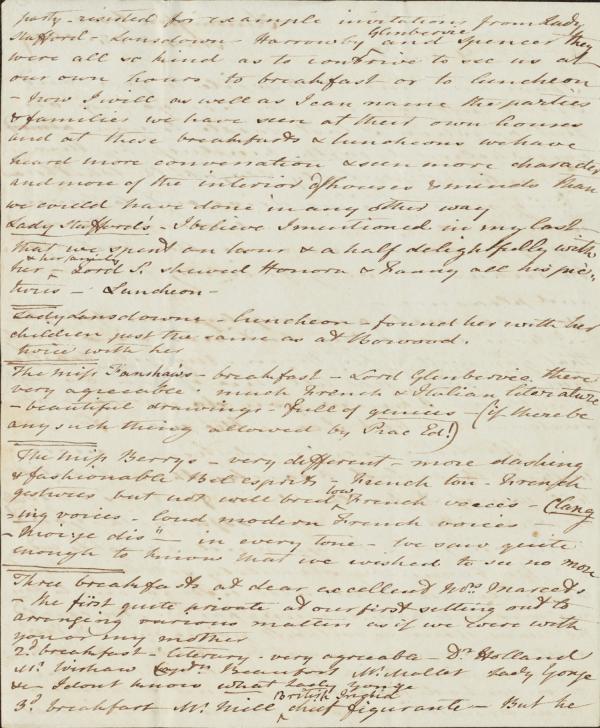 party - resisted for example invitations from Lady
Stafford - Lansdown - Harrowby Glenbervie and Spencer they
were all so kind as to contrive to see us at
our own hours to breakfast or to luncheon
- now I will as well as I can name the parties
& families we have seen at their own houses
and at these breakfasts & luncheons we have
heard more conversation & seen more character
and more of the interior of houses & minds than
we could have done in any other way
Lady Stafford's - I believe I mentioned in my last
that we spent an hour & a half delightfully with
her & her family - Lord S. shewed Honora & Fanny all his pic=
tures - Luncheon -
Lady Lansdowne - luncheon - found her with her
children just the same as at Bowood.
twice with her
The Miss Fanshaws - breakfast - Lord Glenbervie there
very agreeable - much French & Italian literature
- beautiful drawings - full of genius - (if there be
any such thing allowed by Prac Ed!)
The Miss Berrys - very different - more dashing
& fashionable Bel esprits - French ton - French
gestures but not well bred low French voices - Clang
=ing voices - loud modern French voices -
in every tone - We saw quite
enough to know that we wished to see no more
Three breakfasts at dear excellent Mrs. Marcets
- the first quite private at our first setting out to
arranging various matters as if we were with
you or my mother
2d. breakfast - literary - very agreeable - Dr. Holland
Mr. Wishaw Captn. Beaufort Mr. Mallet Lady Yonge
&c - I dont know what Lady Yonge
3d. breakfast Mr. Mill British India chief figurante - But he